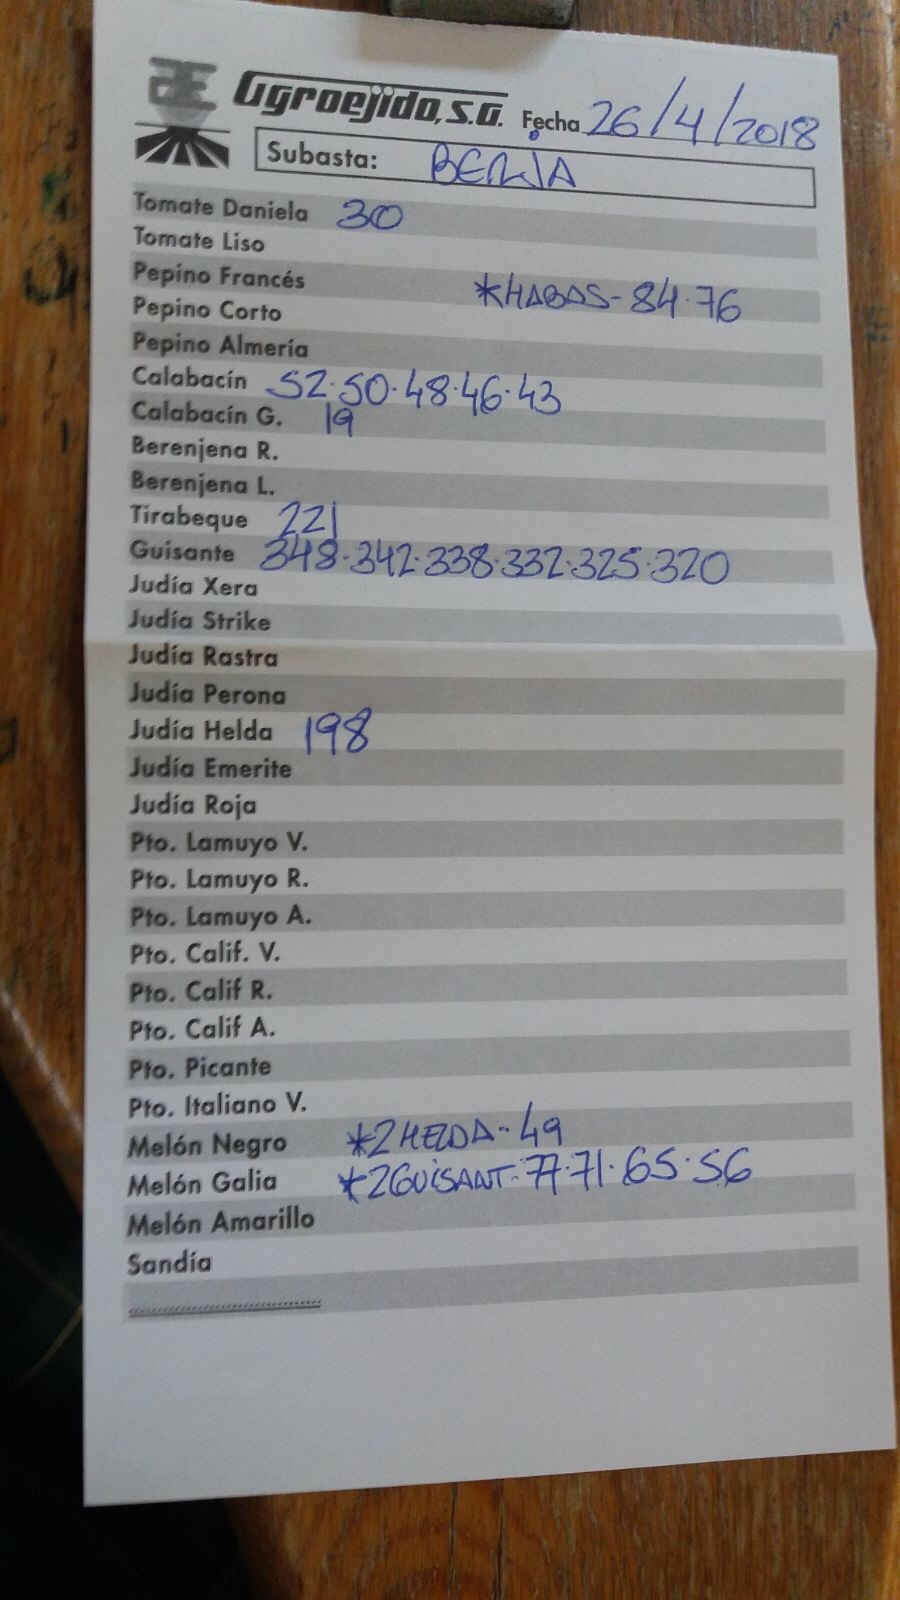 Agroejido, S.A. Fecha 26/4/2018
Subasta: BERJA
Tomate Daniela 30
Tomate Liso
Pepino Francés *HABAS-84·76
Pepino Corto
Pepino Almería
Calabacín 52·50·48·46·43
Calabacín G. 19
Berenjena R.
Berenjena L.
Tirabeque 221
Guisante 348·342·338·332·325·320
Judía Xera
Judía Strike
Judía Rastra
Judía Perona
Judía Helda 198
Judía Emerite
Judía Roja
Pto. Lamuyo V.
Pto. Lamuyo R.
Pto. Lamuyo A.
Pto. Calif. V.
Pto. Calif R.
Pto. Calif A.
Pto. Picante
Pto. Italiano V.
Melón Negro *2HELDA-49
Melón Galia *2GUISANT·77·71·65·56
Melón Amarillo
Sandía